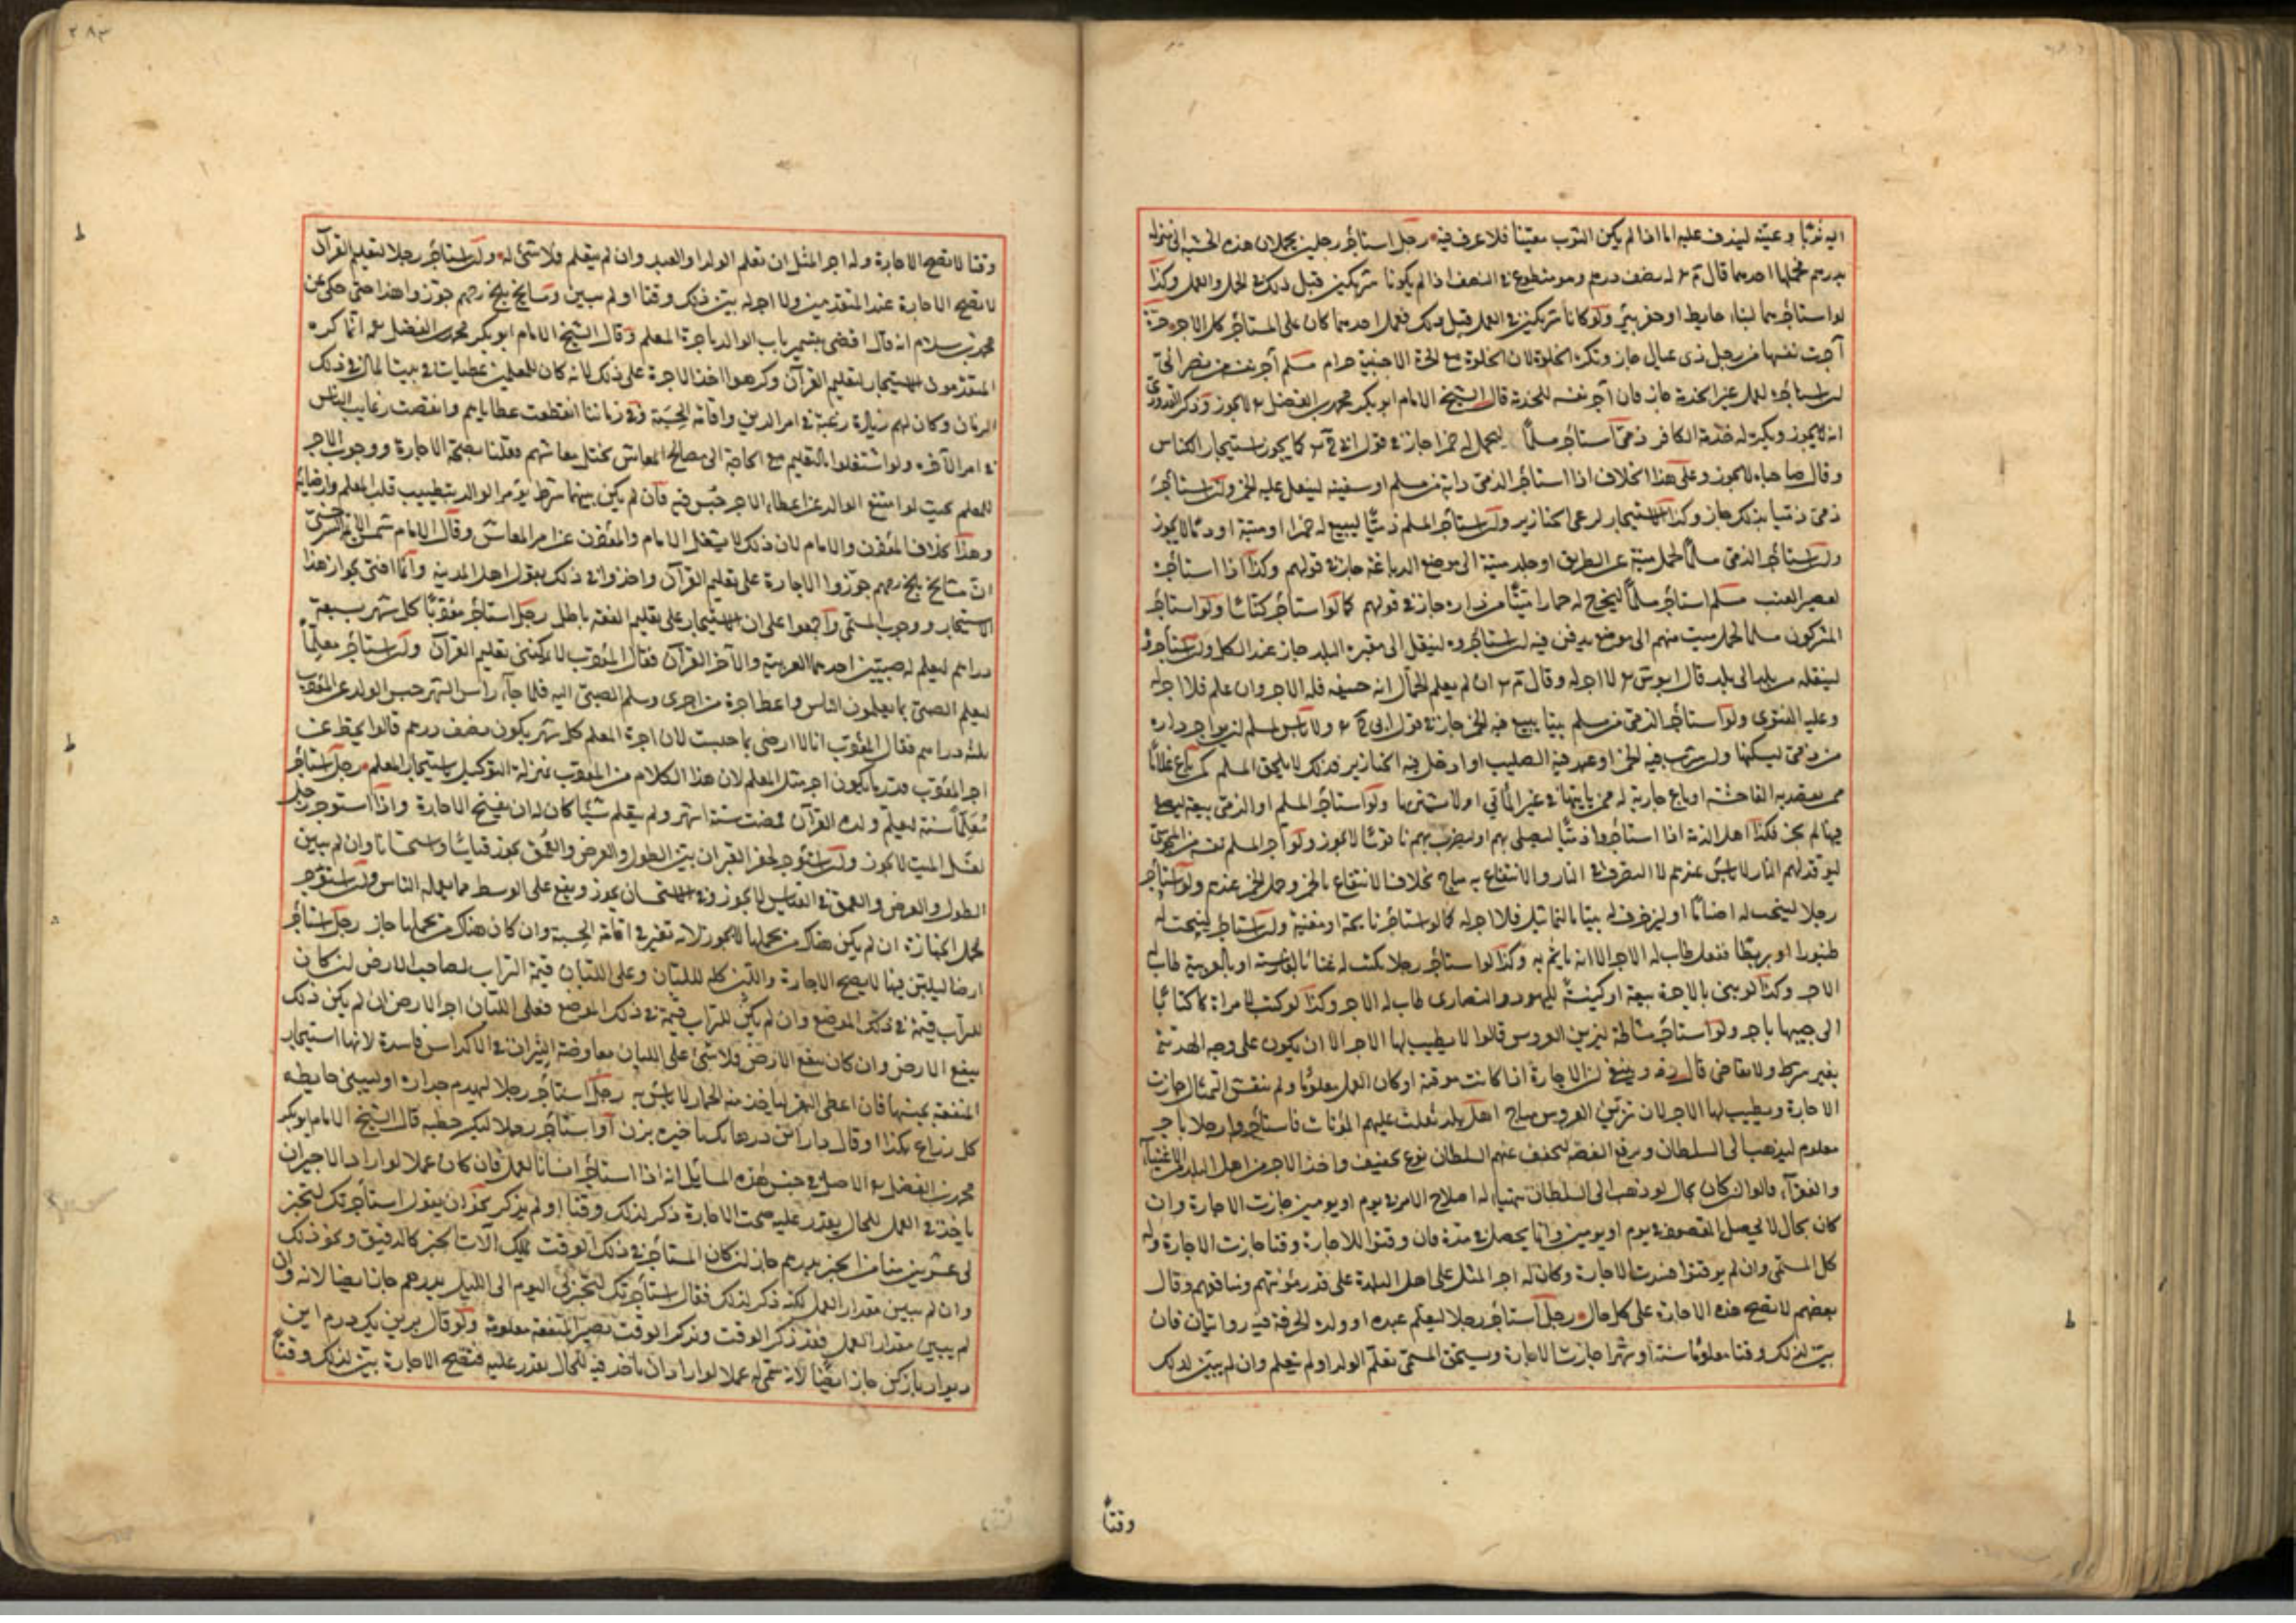 اليه ثوبا وعينه ليندف عليه اما اذا لم يكن الثوب معينا فلا عرف فيه رجل استاجر رجلين يحملان هذه الخشبة الى منزله
بدرهم فحملها احدهما قال له نصف درهم وهو متطوع في النصف اذا لم يكونا شريكين قبل ذلك في الحمل والعمل وكذا
لو استاجرهما لبناء حايط او حفر بئر ولو كانا شريكين في العمل قبل ذلك فعمل احدهما كان على المستاجر كل الاجر حرة
آجرت نفسها من رجل ذى عيال جاز وتكره الخلوة لان الخلوة مع الحرة الاجنبية حرام مسلم آجر نفسه من نصراني
ان استاجره لعمل غير الخدمة جاز فان آجر نفسه للخدمة قال الشيخ الامام ابو بكر محمد بن الفضل لا يجوز وذكر القدورى
انه يجوز ويكره له خدمة الكافر ذمى استاجر مسلما ليحمل له خمرا جاز في قول كما يجوز استيجار الكناس
وقال صاحباه لا يجوز وعلى هذا الخلاف اذا استاجر الذمى دابة من مسلم او سفينة لينقل عليه الخمر ولو استاجر
ذمى ذميا بذلك جاز وكذا الاستيجار لرعى الخنازير ولو استاجر المسلم ذميا ليبيع له خمرا او ميتة او دما لا يجوز
ولو استاجر الذمى مسلما لحمل ميتة عن الطريق او جلد ميتة الى موضع الدباغة جاز في قولهم وكذا اذا استاجره
لعصير العنب مسلم استاجر مسلما ليخرج له حمارا ميتا من داره جاز في قولهم كما لو استاجر كناسا ولو استاجر
المشركون مسلما لحمل ميت منهم الى موضع يدفن فيه ان استاجروه لينقل الى مقبرة البلد جاز عند الكل ولو استاجروه
لينقله من بلد الى بلد قال لا اجر له وقال ان لم يعلم الحمال انه جيفة فله الاجر وان علم فلا اجر له
وعليه الفتوى ولو استاجر الذمى من مسلم بيتا يبيع فيه الخمر جاز في قول ولا باس لمسلم ان يواجر داره
من ذمى ليسكنها وان شرب فيه الخمر او عبد فيه الصليب او ادخل فيه الخنازير فذلك لا يلحق المسلم كمن باع غلاما
ممن يقصد به الفاحشة او باع جارية له ممن ياتيها في غير المأتي او لا يستبريها ولو استاجر المسلم او الذمى بيعة ليصلي
فيها لم يجز فكذا اهل الذمة اذا استاجروا ذميا ليصلى بهم او ليضرب بهم ناقوسا لا يجوز ولو آجر المسلم نفسه من المجوس
ليوقد لهم النار لا باس عندهم لان التصرف في النار والانتفاع به مباح بخلاف الانتفاع بالخمر وحمل الخمر عندهم ولو استاجر
رجلا لينحت له اصناما او ليزخرف له بيتا بالتماثيل فلا اجر له كما لو استاجر نائحة او مغنية ولو استاجر لينحت له
طنبورا او بربطا ففعل طاب له الاجر الا انه ياثم به وكذا لو استاجر رجلا يكتب له غناء بالفارسية او بالعربية طاب له
الاجر وكذا لو بنى بالاجرة بيعة او كنيسة لليهود والنصارى طاب له الاجر وكذا لو كتب لامراة كتابا
الى حبيبها باجر ولو استاجر مشاطة لتزيين العروس قالوا لا يطيب لها الاجر الا ان يكون على وجه الهدية
بغير شرط ولا تقاضى قال وينبغي ان الاجارة اذا كانت موقتة او كان العمل معلوما ولم تنقش التمثال جازت
الاجارة ويطيب لها الاجر لان تزيين العروس مباح اهل بلد ثقلت عليهم المؤنات فاستاجروا رجلا باجر
معلوم ليذهب الى السلطان ويرفع القصة ليخفف عنهم السلطان نوع تخفيف واخذ الاجر من اهل البلد الاغنياء
والفقراء قالوا ان كان بحال لو ذهب الى السلطان يتهيا له اصلاح الامر في يوم او يومين جازت الاجارة وان
كان بحال لا يحصل المقصود في يوم او يومين وانما يحصل في مدة فان وقتوا للاجارة وقتا جازت الاجارة وله
كل المسمى وان لم يوقتوا فسدت الاجارة وكان له اجر المثل على اهل البلدة على قدر مؤنتهم ومنافعهم وقال
بعضهم لا تصح هذه الاجارة على كل حال رجل استاجر رجلا ليعلم عبده او ولده الحرفة فيه روايتان فان
بين لذلك وقتا معلوما سنة او شهرا جازت الاجارة ويستحق المسمى تعلم الولد او لم يتعلم وان لم يبين لذلك
وقتا
٢٨٣
وقتا لا تصح الاجارة وله اجر المثل ان تعلم الولد او العبد وان لم يتعلم فلا شئ له ولو استاجر رجلا لتعليم القرآن
لا تصح الاجارة عند المتقدمين ولا اجر له بين لذلك وقتا او لم يبين ومشايخ بلخ رحمهم جوزوا هذا حتى حكى عن
محمد بن سلام انه قال اقضى بتسمير باب الوالد باجرة المعلم وقال الشيخ الامام ابو بكر محمد بن الفضل انما كره
المتقدمون الاستيجار لتعليم القرآن وكرهوا اخذ الاجرة على ذلك لانه كان للمعلمين عطيات في بيت المال في ذلك
الزمان وكان لهم زيادة رغبة في امر الدين واقامة الحسبة وفي زماننا انقطعت عطاياهم وانتقصت رغايب الناس
في امر الآخرة ولو اشتغلوا بالتعليم مع الحاجة الى مصالح المعاش يختل معاشهم فقلنا بصحة الاجارة ووجوب الاجر
للمعلم بحيث لو امتنع الوالد عن اعطاء الاجر حبس فيه فان لم يكن بينهما شرط يؤمر الوالد بتطييب قلب المعلم وارضائه
وهذا بخلاف المؤذن والامام لان ذلك لا يشغل الامام والمؤذن عن امر المعاش وقال الامام شمس الايمة السرخسي
ان مشايخ بلخ رحمهم جوزوا الاجارة على تعليم القرآن واخذوا في ذلك بقول اهل المدينة وانا افتى بجواز هذا
الاستيجار ووجوب المسمى واجمعوا على ان الاستيجار على تعليم الفقه باطل رجل استاجر مؤدبا كل شهر بسبعة
دراهم ليعلم له صبيين احدهما العربية والآخر القرآن فقال المؤدب لا يمكننى تعليم القرآن ولو استاجر معلما
ليعلم الصبي بما يعلمون الناس واعطا اجرة من اجرى وسلم الصبي اليه فلما جاء راس الشهر حبس الوالد عن المؤدب
ثلثة دراهم فقال المؤدب انا لا ارضى بما حبست لان اجرة المعلم كل شهر يكون نصف درهم قالوا يحط عن
اجر المؤدب قدر ما يكون اجر مثل المعلم لان هذا الكلام من المؤدب بمنزلة التوكيل باستيجار المعلم رجل استاجر
معلما سنة ليعلم ولده القرآن فمضت ستة اشهر ولم يتعلم شيئا كان له ان يفسخ الاجارة واذا استوجر رجل
لغسل الميت لا يجوز ولو استؤجر لحفر القبر ان بين الطول والعرض والعمق يجوز قياسا واستحسانا وان لم يبين
الطول والعرض والعمق في القياس لا يجوز وفي الاستحسان يجوز ويقع على الوسط مما يعمله الناس ولو استؤجر
لحمل الجنازة ان لم يكن هناك من يحملها لا يجوز لانه تعين في اقامة الحسبة وان كان هناك من يحملها جاز رجل استاجر
ارضا ليلبن فيها لا يصح الاجارة واللبن كله لللبان وعلى اللبان قيمة التراب لصاحب الارض ان كان
للتراب قيمة في ذلك الموضع وان لم يكن للتراب قيمة في ذلك الموضع فعلى اللبان اجر الارض ان لم يكن ذلك
ينفع الارض وان كان ينفع الارض فلا شئ على اللبان معاوضة الثيران في الاكداس فاسدة لانها استيجار
المنفعة بجنسها فان اعطى البقر لياخذ منه الحمار لا باس به رجل استاجر رجلا ليهدم جداره او ليبني حايطه
كل ذراع بكذا او قال من درهما بزن او استاجر رجلا ليكسر حطبه قال الشيخ الامام ابو بكر
محمد بن الفضل الاصل في جنس هذه المسايل انه اذا استاجر انسانا لعمل فان كان عملا لو اراد الاجير ان
ياخذ في العمل للحال يقدر عليه صحت الاجارة ذكر لذلك وقتا او لم يذكر نحو ان يقول استاجرتك لتخبز
لى عشرين منا من الخبز بدرهم جاز ان كان المستاجر في ذلك الوقت يملك آلات الخبز كالدقيق ونحو ذلك
وان لم يبين مقدار العمل لكنه ذكر لذلك فقال استاجرتك لتخبز لى اليوم الى الليل بدرهم جاز ايضا لانه وان
لم يبين مقدار العمل فقد ذكر الوقت وبذكر الوقت تصير المنفعة معلومة ولو قال بدين يك درم اين
ديوار باز كن جاز ايضا لانه سمى له عملا لو اراد ان ياخذ فيه للحال يقدر عليه فتصح الاجارة بين لذلك وقتا